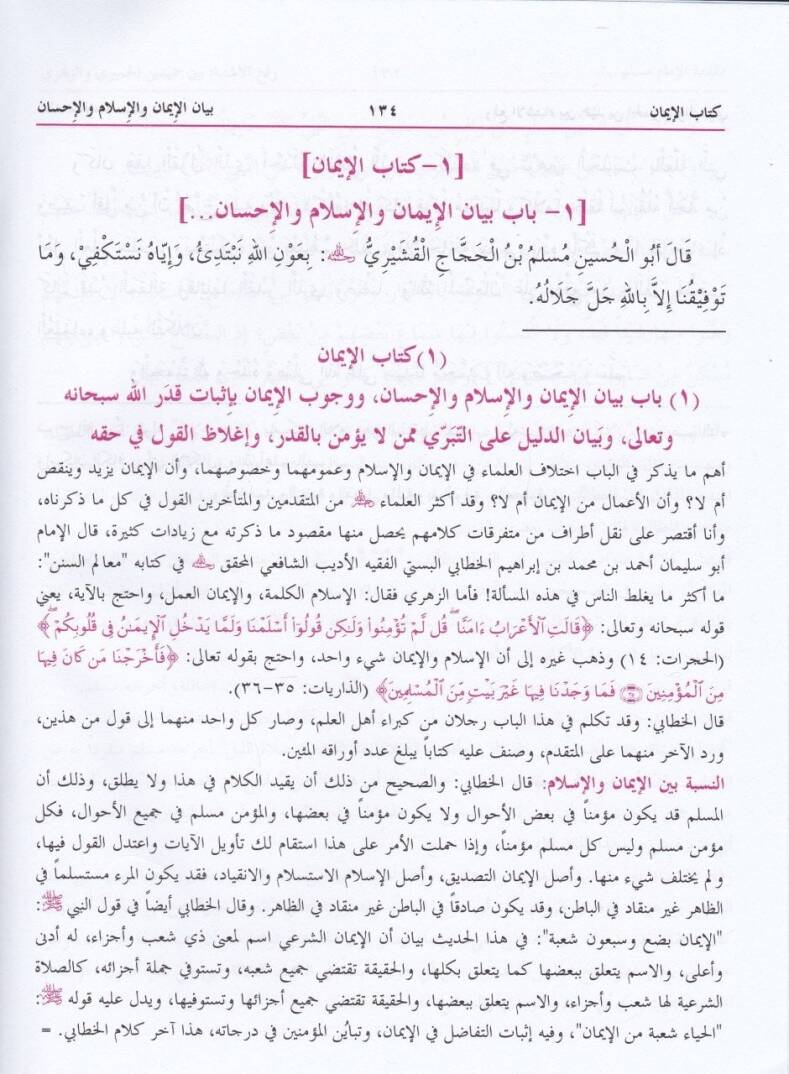 كتاب الإيمان ١٣٤ بيان الإيمان والإسلام والإحسان
[١- كتاب الإيمان]
[١- باب بيان الإيمان والإسلام والإحسان...]
قَالَ أَبُو الْحُسَينِ مُسْلمُ بْنُ الْحَجَّاجِ الْقُشَيْرِيُّ رحمه الله: بِعَوْنِ اللهِ نَبْتَدِئُ، وَإِيَّاهُ نَسْتَكْفِيْ، وَمَا
تَوْفِيْقُنَا إِلاَّ بِاللهِ جَلَّ جَلَالُهُ.
(١) كتاب الإيمان
(١) باب بيان الإيمان والإسلام والإحسان، ووجوب الإيمان بإثبات قدَر الله سبحانه
وتعالى، وبَيان الدليل على التَبَرِّي ممن لا يؤمن بالقدر، وإغلاظ القول في حقه
أهم ما يذكر في الباب اختلاف العلماء في الإيمان والإسلام وعمومهما وخصوصهما، وأن الإيمان يزيد وينقص
أم لا؟ وأن الأعمال من الإيمان أم لا؟ وقد أكثر العلماء رحمهم الله من المتقدمين والمتأخرين القول في كل ما ذكرناه،
وأنا أقتصر على نقل أطراف من متفرقات كلامهم يحصل منها مقصود ما ذكرته مع زيادات كثيرة، قال الإمام
أبو سليمان أحمد بن محمد بن إبراهيم الخطابي البستي الفقيه الأديب الشافعي المحقق رحمه الله في كتابه "معالم السنن":
ما أكثر ما يغلط الناس في هذه المسألة! فأما الزهري فقال: الإسلام الكلمة، والإيمان العمل، واحتج بالآية، يعني
قوله سبحانه وتعالى: ﴿قَالَتِ ٱلْأَعْرَابُ ءَامَنَّا ۖ قُل لَّمْ تُؤْمِنُوا۟ وَلَـٰكِن قُولُوٓا۟ أَسْلَمْنَا وَلَمَّا يَدْخُلِ ٱلْإِيمَـٰنُ فِى قُلُوبِكُمْ ۖ﴾
(الحجرات: ١٤) وذهب غيره إلى أن الإسلام والإيمان شيء واحد، واحتج بقوله تعالى: ﴿فَأَخْرَجْنَا مَن كَانَ فِيهَا
مِنَ ٱلْمُؤْمِنِينَ ۝ فَمَا وَجَدْنَا فِيهَا غَيْرَ بَيْتٍۢ مِّنَ ٱلْمُسْلِمِينَ﴾ (الذاريات: ٣٥-٣٦).
قال الخطابي: وقد تكلم في هذا الباب رجلان من كبراء أهل العلم، وصار كل واحد منهما إلى قول من هذين،
ورد الآخر منهما على المتقدم، وصنف عليه كتاباً يبلغ عدد أوراقه المئين.
النسبة بين الإيمان والإسلام: قال الخطابي: والصحيح من ذلك أن يقيد الكلام في هذا ولا يطلق، وذلك أن
المسلم قد يكون مؤمناً في بعض الأحوال ولا يكون مؤمناً في بعضها، والمؤمن مسلم في جميع الأحوال، فكل
مؤمن مسلم وليس كل مسلم مؤمناً، وإذا حملت الأمر على هذا استقام لك تأويل الآيات واعتدل القول فيها،
ولم يختلف شيء منها. وأصل الإيمان التصديق، وأصل الإسلام الاستسلام والانقياد، فقد يكون المرء مستسلماً في
الظاهر غير منقاد في الباطن، وقد يكون صادقاً في الباطن غير منقاد في الظاهر. وقال الخطابي أيضاً في قول النبي ﷺ:
"الإيمان بضع وسبعون شعبة": في هذا الحديث بيان أن الإيمان الشرعي اسم لمعنى ذي شعب وأجزاء، له أدنى
وأعلى، والاسم يتعلق ببعضها كما يتعلق بكلها، والحقيقة تقتضي جميع شعبه، وتستوفي جملة أجزائه، كالصلاة
الشرعية لها شعب وأجزاء، والاسم يتعلق ببعضها، والحقيقة تقتضي جميع أجزائها وتستوفيها، ويدل عليه قوله ﷺ:
"الحياء شعبة من الإيمان"، وفيه إثبات التفاضل في الإيمان، وتباين المؤمنين في درجاته، هذا آخر كلام الخطابي. =